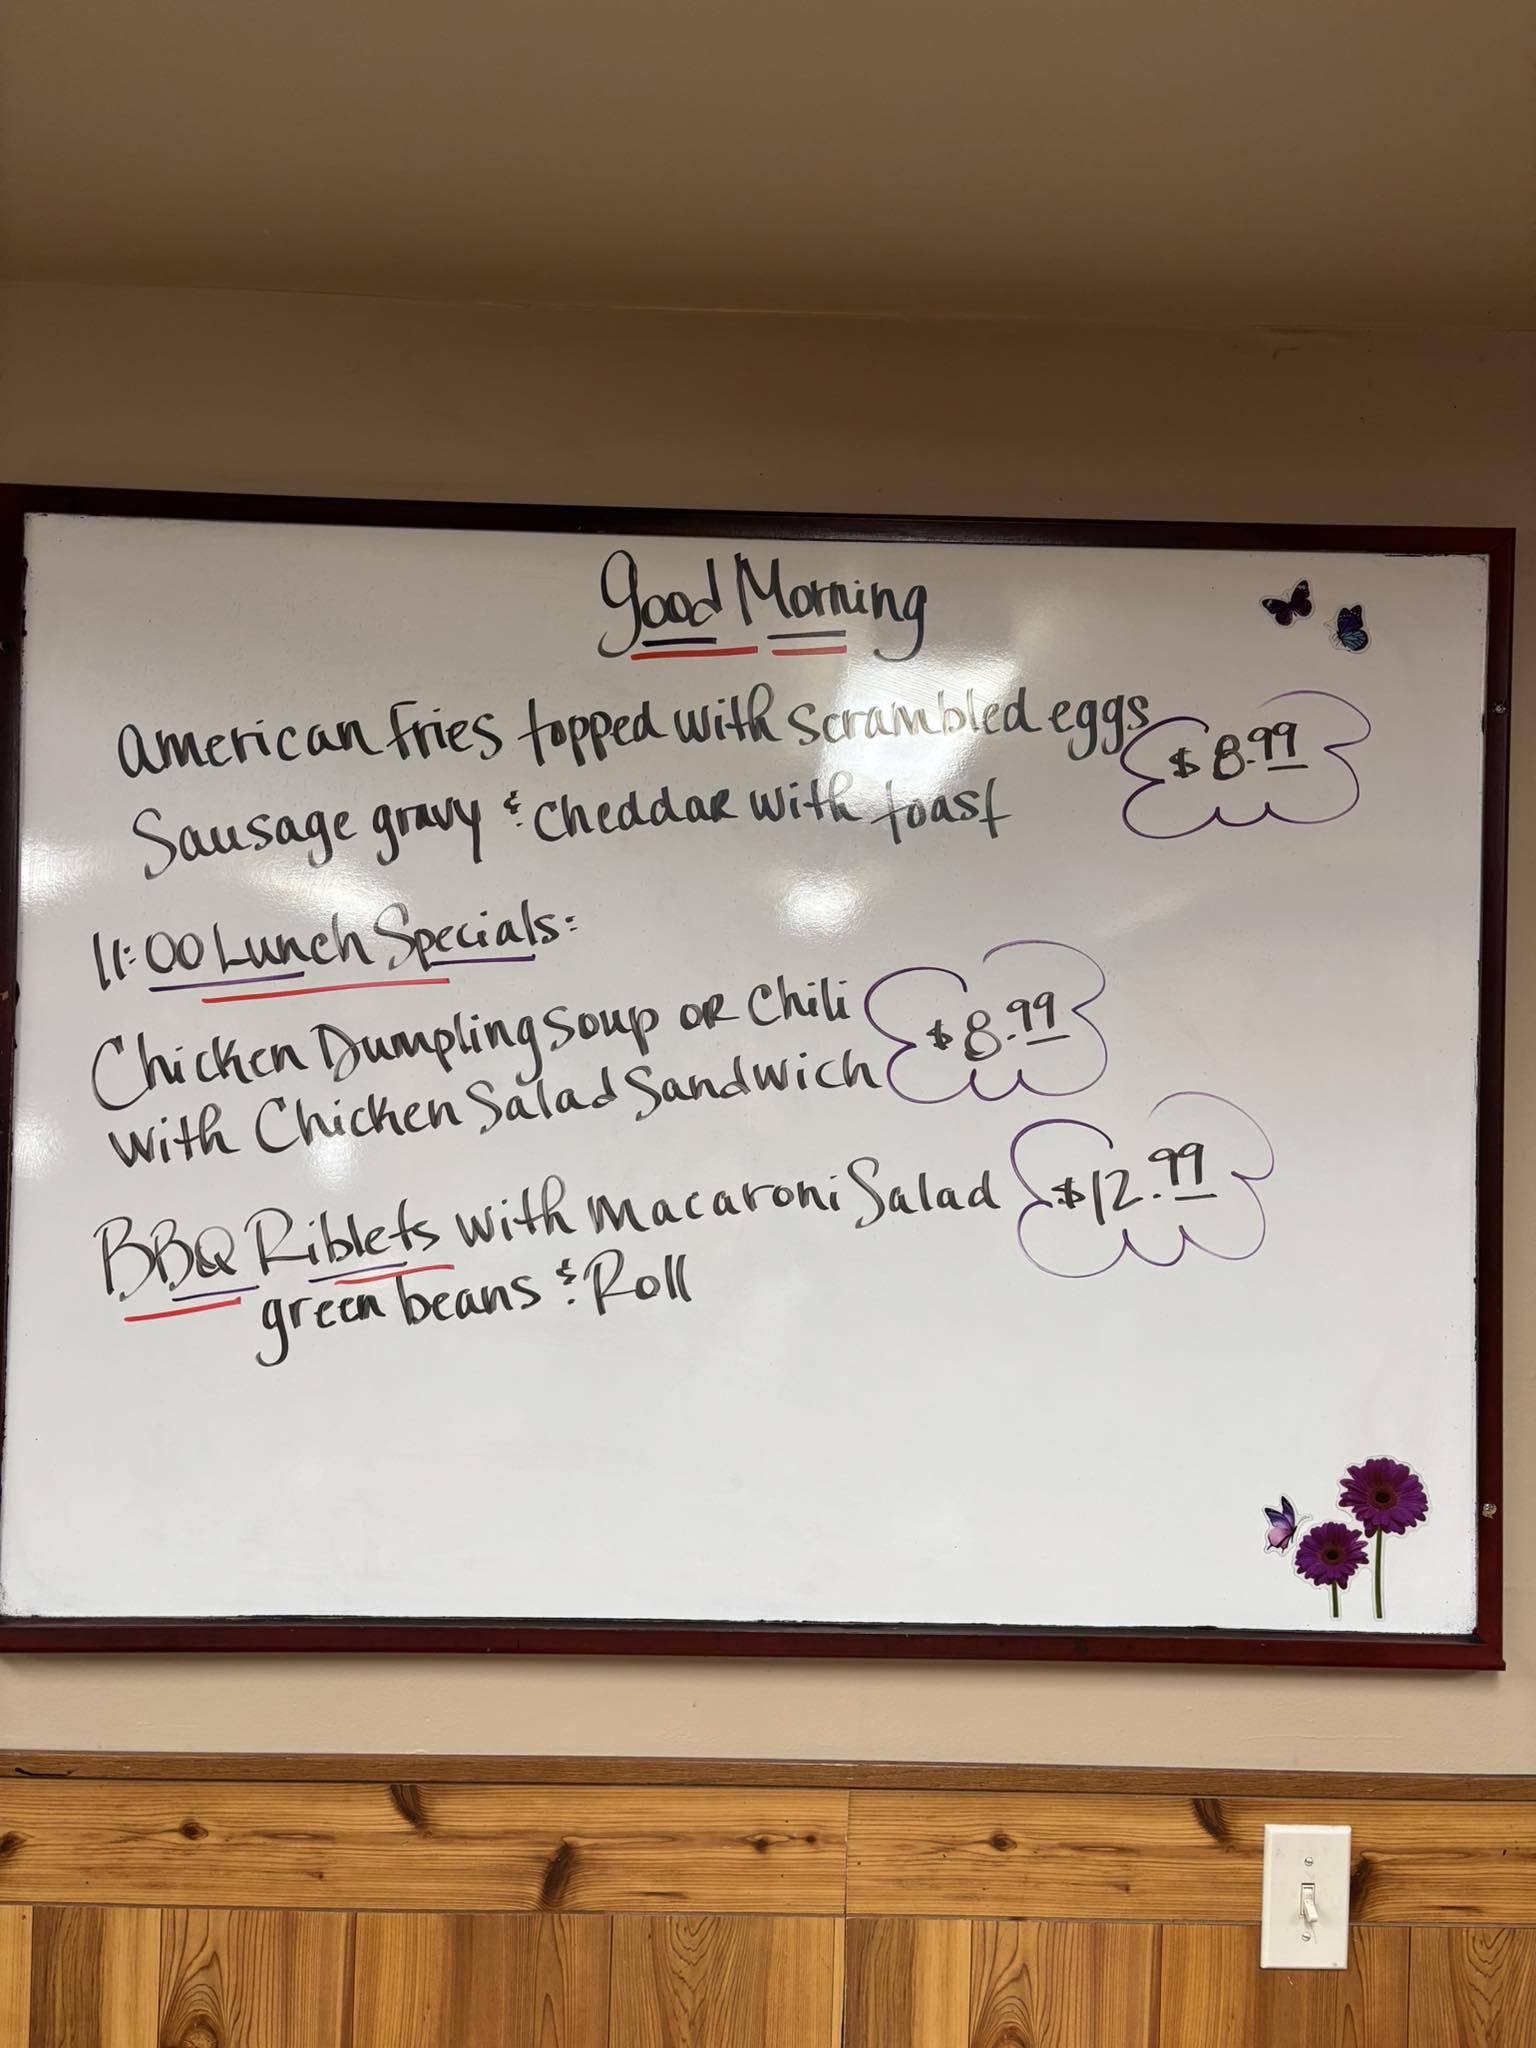 Good Morning
American Fries topped with scrambled eggs $8.99
Sausage gravy & cheddar with toast
11:00 Lunch Specials:
Chicken Dumpling Soup OR Chili $8.99
with Chicken Salad Sandwich
BBQ Riblets with Macaroni Salad $12.99
green beans & Roll